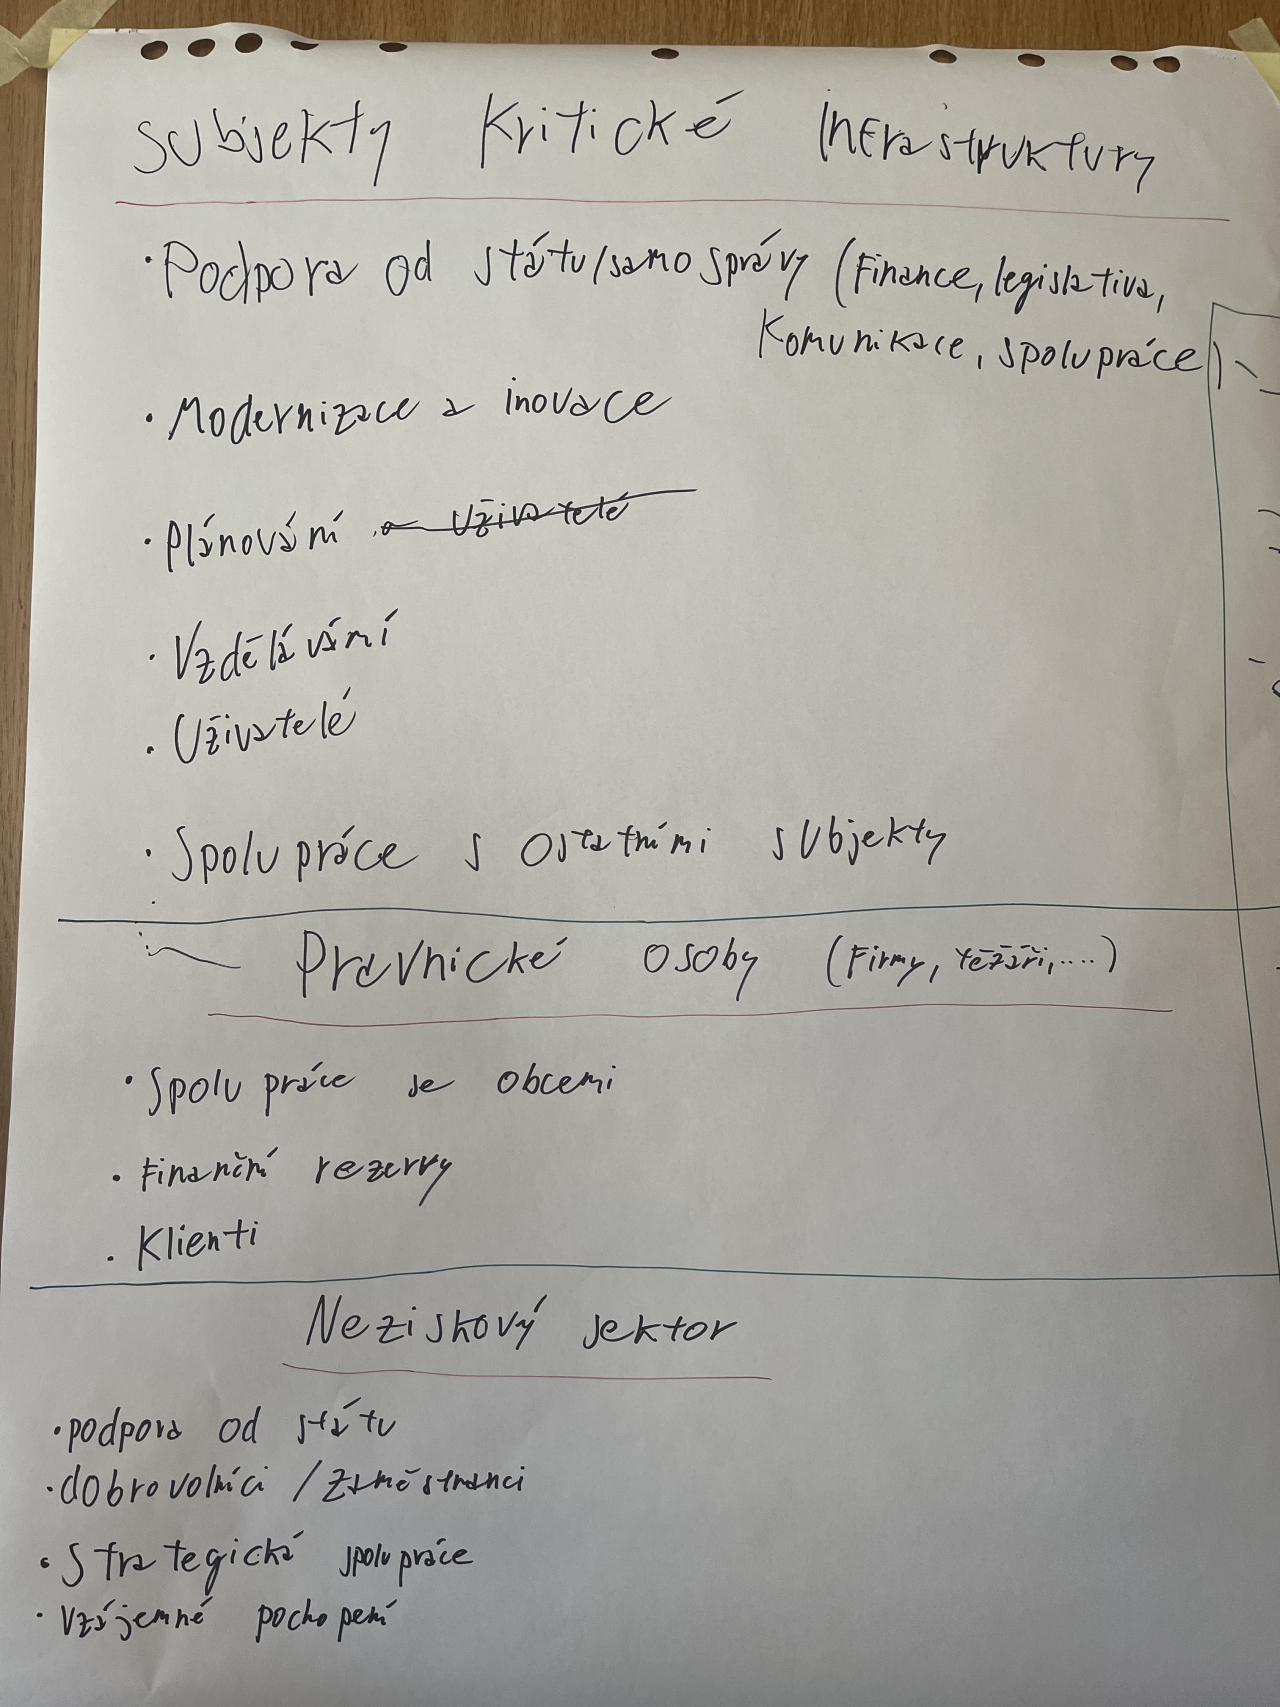 Subjekty kritické infrastruktury
• Podpora od státu/samosprávy (finance, legislativa,
komunikace, spolupráce)
• Modernizace a inovace
• Plánování a uživatelé
• Vzdělávání
• Uživatelé
• Spolupráce s ostatními subjekty
Pravnické osoby (firmy, těžaři,....)
• Spolupráce se obcemi
• Finanční rezervy
• Klienti
Neziskový sektor
• podpora od státu
• dobrovolníci / zaměstnanci
• Strategická spolupráce
• vzájemné pochopení